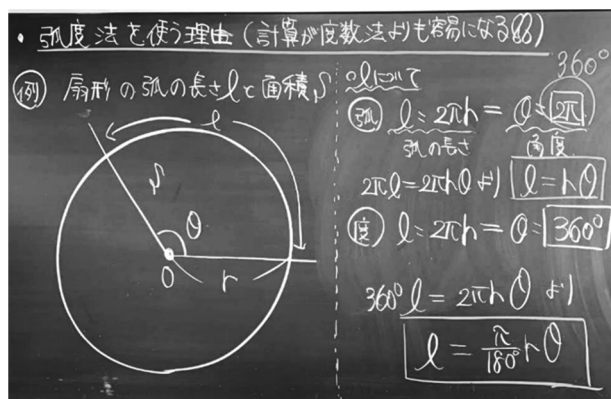 ・弧度法を使う理由(計算が度数法よりも容易になる)
例 扇形の弧の長さlと面積S
l
S
θ
O
r
○lについて
360°
弧 l=2πr=θ=2π
弧の長さ 角度
2πl=2πrθより l=rθ
度 l=2πr=θ=360°
360°l=2πrθより
l=π/180°rθ